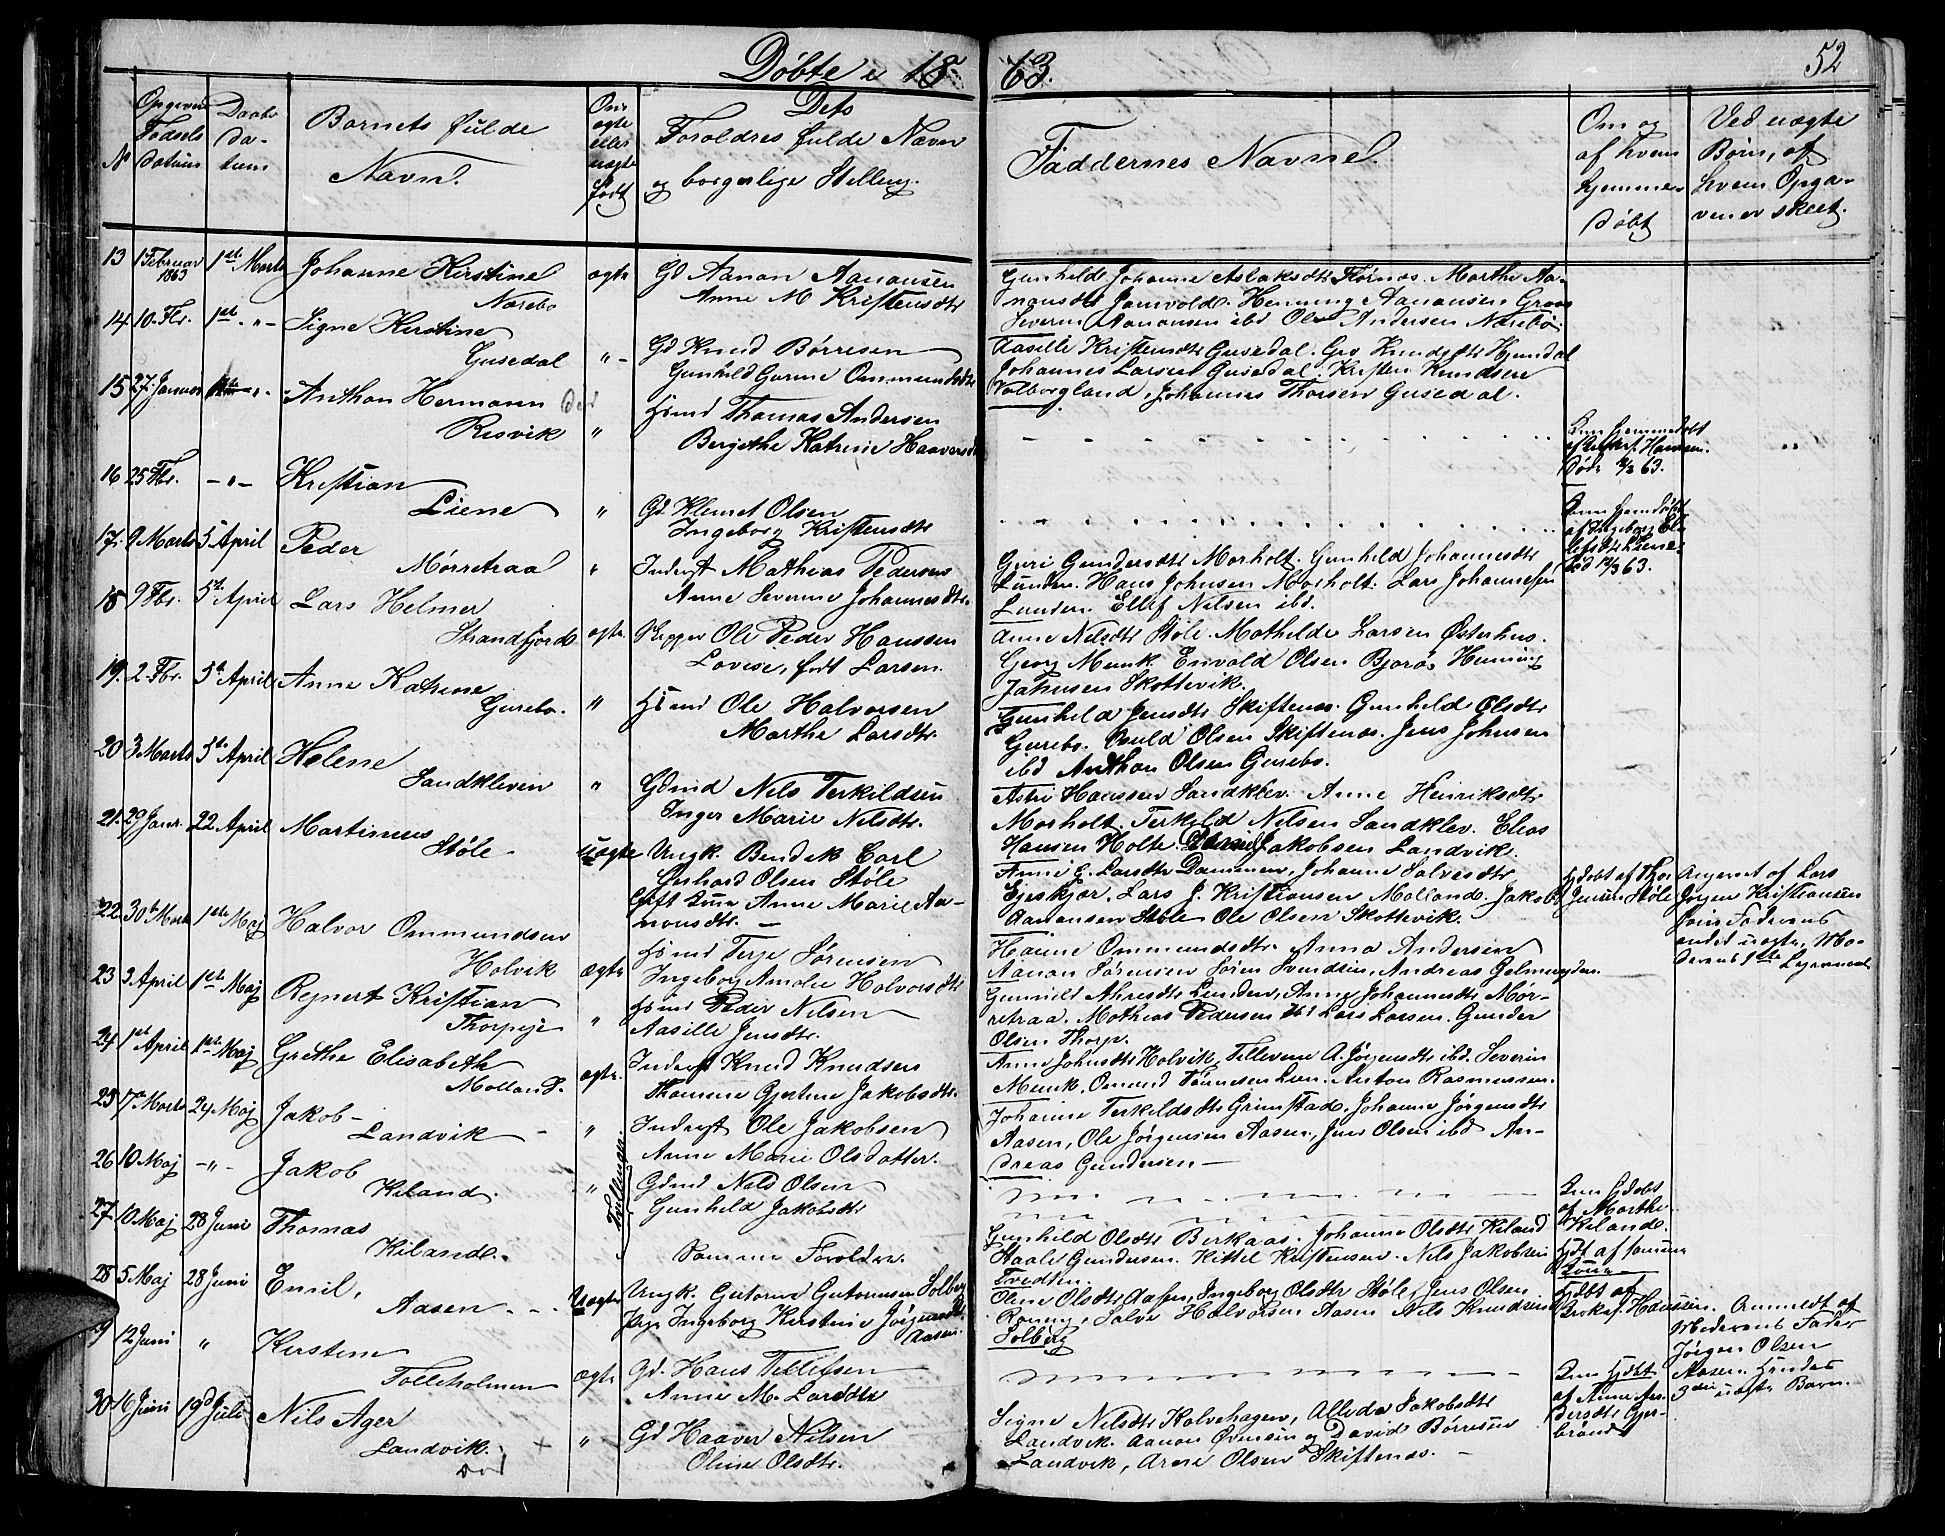 Døbte i 1863.
52
No
Opgiven Fødsels Datum
Daabs Datum
Barnets fulde Navn.
Om ægte eller uægte født
Dets Foroldres fulde Navn og borgerlige Stilling.
Faddernes Navne.
Om og af hvem hjemmedøbt
Ved uægte Børn, af hvem Opgaven er skeet.
13 1 Februar 1863 1ste Marts Johanne Kirstine Nærebø ægte Gd Aanon Aanonsen
Anne M Kristensdtr
Gunhild Johanne Aslaksdtr Marthe Aa-
nonsdtr Henning Aanonsen Groos
Severin Aanonsen ibd Ole Andersen Nærebø.
14 10 Fbr. 1ste "- Signe Kirstine Gusedal "- Gd Knud Børresen
Gunhild Gurine Ommundsdtr
Aasille Kristensdtr Gusedal. Gro Knudsdtr
Johannes Larsen Gusedal. Kristen Knudsen
Johannes Thorsen Gusedal.
15 27 Januar Anthon Hermann Død
Resvik " Hsmd Thomas Andersen
Bergithe Katrine Haaversdtr
Kun hjemmedøbt
Hansen.
Døde 63.
16 25 Fbr. -"- Kristian
Liene " Gd Klemet Olsen
Ingeborg Kristensdtr
Kun hjemdøbt
af Ingeborg El-
lefsdtr Liene
død 63.
17. 9 Marts 5 April Peder
Mørretraa " Inderst Mathias Pedersen
Anne Severine Johannesdtr.
Guri Gundersdtr Morholt. Gunhild Johannesdtr
Lunden. Hans Johnsen Morholt. Lars Johannesen
Lunden. Ellef Nilsen ibd.
18 9 Fbr. 5te April Lars Helmer
Strandfjord ægte Skipper Ole Peder Hanssen
Lovise, født Larsen.
Anne Nilsdtr Støle. Mathilde Larsen Østerhus.
Georg Munk. Envold Olsen Bjorøs Henning
Jahnsen Skottevik.
19. 2 Fbr. 5te April Anne Katrine
Gurebo. " Hsmd Ole Halvorsen
Marthe Larsdtr.
Gunhild Jensdtr Skiftenæs. Gunhild Olsdtr
Gurebo. Olsen Skiftenæs. Jens Johnsen
ibd Anthon Olsen Gurebo.
20 3 Marts 5te April Helene
Sandkleven " Gdmd Nils Terkildsen
Inger Marie Nilsdtr.
Astri Hanssen Sandklev. Anne Henriksdtr
Morholt. Terkild Nilsen Sandklev. Elias
Hansen Holte Jakobsen Landvik.
21. 29 Janr. 22 April Martinus
Støle uægte Ungk. Bendik Carl
Gerhard Olsen Støle
Gift Kone Anne Marie Aa-
nonsdtr. —
Anne G. Larsdtr Dammen, Johanne Salvesdtr
Egeskjær. Lars J. Kristiansen Molland. Jakob
Aanonsen Støle Ole Olsen Skottevik.
Hjdøbt af Thor
Jensen Støle
Angivet af Lars
Jørgen Kristiansen
Faderens
andet uægte, Mo-
derens 1ste Leiermaal
22 30te Marts 1ste Maj Halvor Ommundsen
Holvik ægte Hsmd Terje Sørensen
Ingeborg Amalie Halvorsdtr
Hanne Ommundsdtr. Anna Andersen
Aanon Sørensen Søren Svendsen, Andreas
23 3 April 1ste Maj Regnert Kristian
Thorpeje " Hsmd Peder Nilsen
Aasille Jensdtr.
Gunnild Ahresdtr Lunden, Anne Johannesdtr Mør-
retraa. Mathias Pedersen ibd Lars Larsen. Gunder
Olsen Thorp.
24 1ste April 1ste Maj Grethe Elisabeth
Molland. ægte. Inderst Knud Knudsen
Thomine Gjertine Jakobsdtr.
Anne Johnsdtr Holvik, Tellevine A. Jørgensdtr ibd. Severin
Munk, Omund Tønnesen Anton Rasmussen.
25 7de Marts 24 Maj Jakob-
Landvik - " Inderst Ole Jakobsen
Anne Marie Olsdatter.
Johanne Terkildsdtr Grimstad. Johanne Jørgensdtr
Aasen, Ole Jørgensen Aasen, Jens Olsen ibd An-
dreas Gundersen —
26 10 Maj -"- Jakob
Kiland. " Tvillinger Gdmd Nils Olsen
Gunhild Jakobsdtr
Kun hjdøbt
af Marthe
Kiland.
27 10 Maj 28 Juni Thomas
Kiland.
Samme Foroldre.
Gunhild Olsdtr Berkaas. Johanne Olsdtr Kiland
Staale Gundersen. Kittel Kristensen. Nils Jakobsen
Tvedten.
Hjdt af samme
Kone
28 5 Maj 28 Juni Emil,
Aasen - - Uægte Ungk. Gutorm Gutormsen Solberg
Pige Ingeborg Kirstine Jørgensdtr
Aasen.
Oline Olsdtr Aasen, Ingeborg Olsdtr Støle, Jens Olsen
Salve Halvorsen Aasen Nils Knudsen
Solberg
Hjdøbt af
Kirkes. Hanssen.
Anmeldt af
Moderens Fader
Jørgen Olsen
Aasen. Hendes
3die uægte Barn.
29 12 Juni " Kirstine
Tolleholmen ægte Gd. Hans Tellefsen
Anne M. Larsdtr
Kun Hjdøbt
af Anne An-
dersdtr Gjer-
brønd
30 16 Juni 19de Juli Nils Ager
Landvik. Død × " Gd Haaver Nilsen
Oline Olsdtr.
Signe Nilsdtr Kalvehagen, Jakobsdtr
Landvik. Aanon Øvensen og David Børresen
Landvik, Arne Olsen Skiftenæs. —